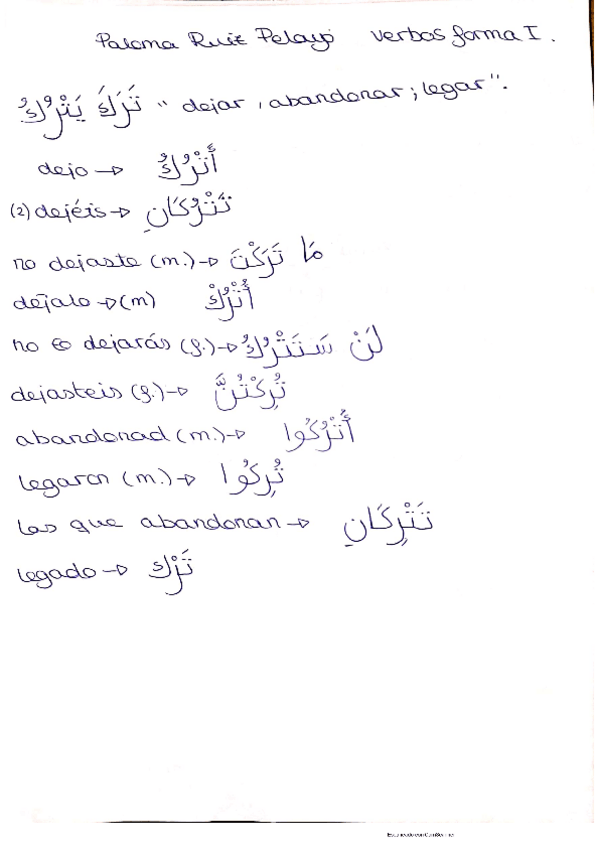 Paloma Ruiz Pelayo verbos forma I.
تَرَكَ يَتْرُكُ "dejar, abandonar; legar".
dejo → أَتْرُكُ
(2) dejéis → تَتْرُكَانِ
no dejaste (m.) → مَا تَرَكْتَ
déjalo → (m) أُتْرُكْ
no dejarás (f.) → لَنْ سَتَتْرُكُ
dejasteis (f.) → تُرِكْتُنَّ
abandonad (m.) → أُتْرُكُوا
legaron (m.) → تُرِكُوا
las que abandonan → تَتْرِكَانِ
legado → تَرْك
Escaneado con CamScanner